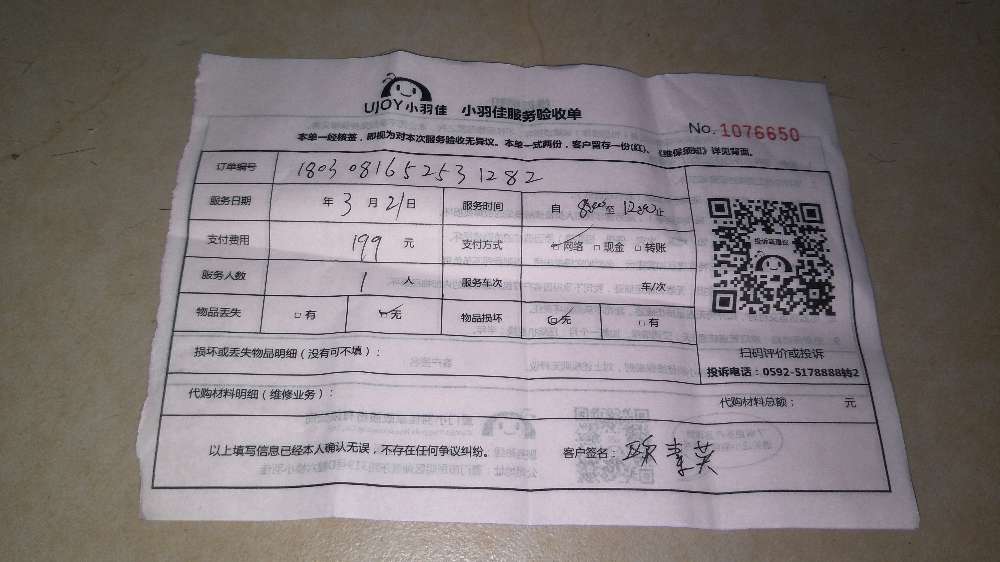 UJOY小羽佳 小羽佳服务验收单
No. 1076650
本单一经核签，即视为对本次服务验收无异议。本单一式两份，客户留存一份(红)。《维保须知》详见背面。
订单编号 1803081652531282
服务日期 年 3 月 21 日 服务时间 自 8:00 至 12:00 止
支付费用 199 元 支付方式 网络 现金 转账
服务人数 1 人 服务车次 车/次
物品丢失 有 无 物品损坏 无 有
扫码评价或投诉
投诉电话：0592-5178888转2
损坏或丢失物品明细（没有可不填）：
代购材料明细（维修业务）： 代购材料总额： 元
以上填写信息已经本人确认无误，不存在任何争议纠纷。 客户签名：